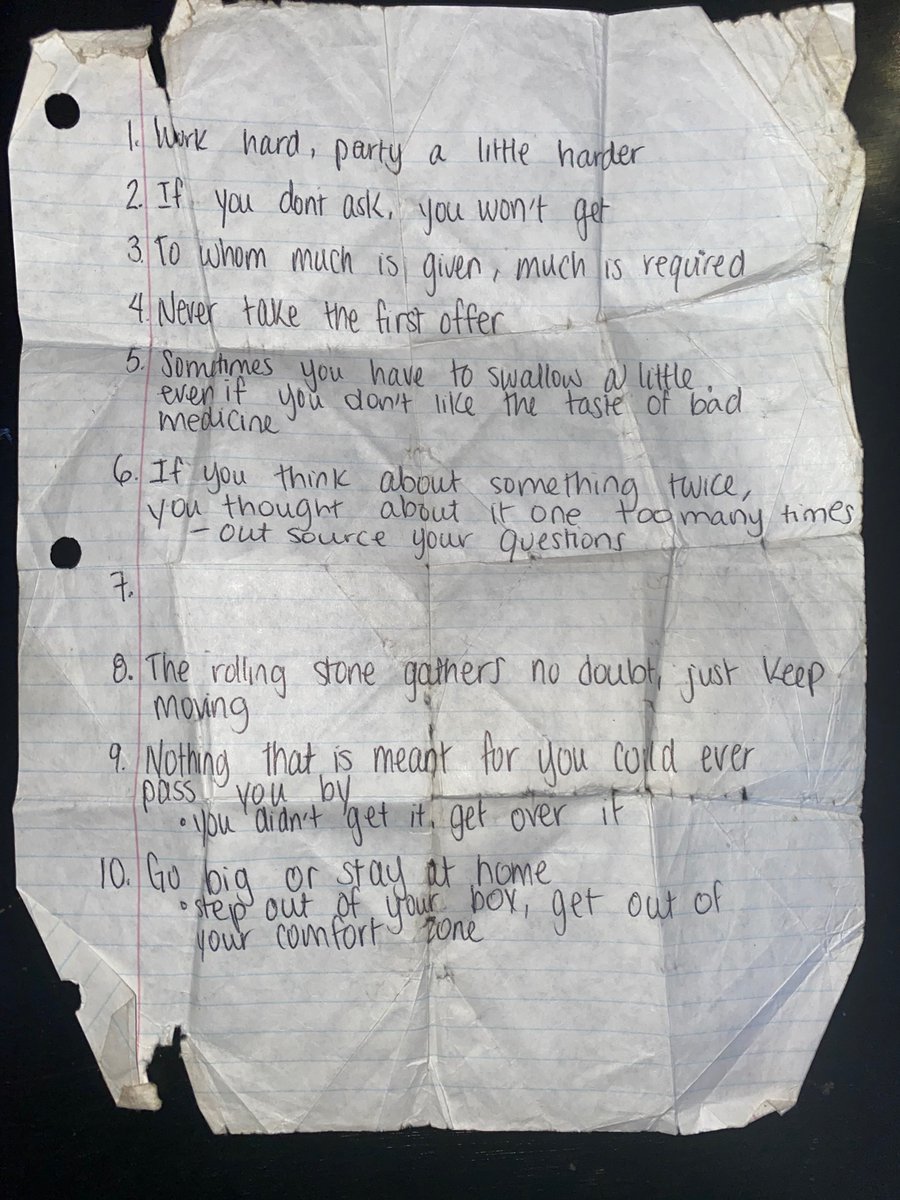 1. Work hard, party a little harder
2. If you dont ask, you won't get
3. To whom much is given, much is required
4. Never take the first offer
5. Sometimes you have to swallow a little
even if you don't like the taste of bad
medicine
6. If you think about something twice,
you thought about it one too many times
- out source your questions
7.
8. The rolling stone gathers no doubt, just keep
moving
9. Nothing that is meant for you could ever
pass you by
• you didn't get it, get over it
10. Go big or stay at home
• step out of your box, get out of
your comfort zone